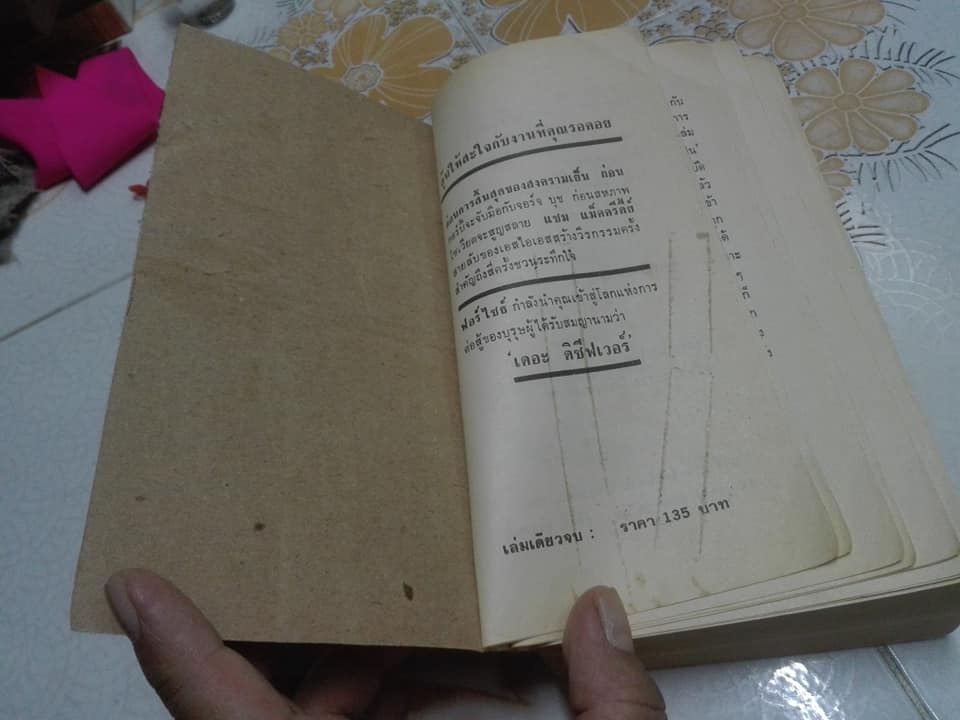 ให้สะใจกับงานที่คุณรอคอย
ก่อนการสิ้นสุดของสงครามเย็น ก่อน
จะจับมือกับจอร์จ บุช ก่อนสหภาพ
โซเวียตจะสูญสลาย แซม แม็คครีดี้ส์
สายลับของเอสไอเอสสร้างวีรกรรมครั้ง
สำคัญถึงสี่ครั้งชวนระทึกใจ
ฟอร์ไซธ์ กำลังนำคุณเข้าสู่โลกแห่งการ
ต่อสู้ของบุรุษผู้ได้รับสมญานามว่า
'เดอะ ดิซีฟเวอร์'
เล่มเดียวจบ : ราคา 135 บาท
กัน
การ